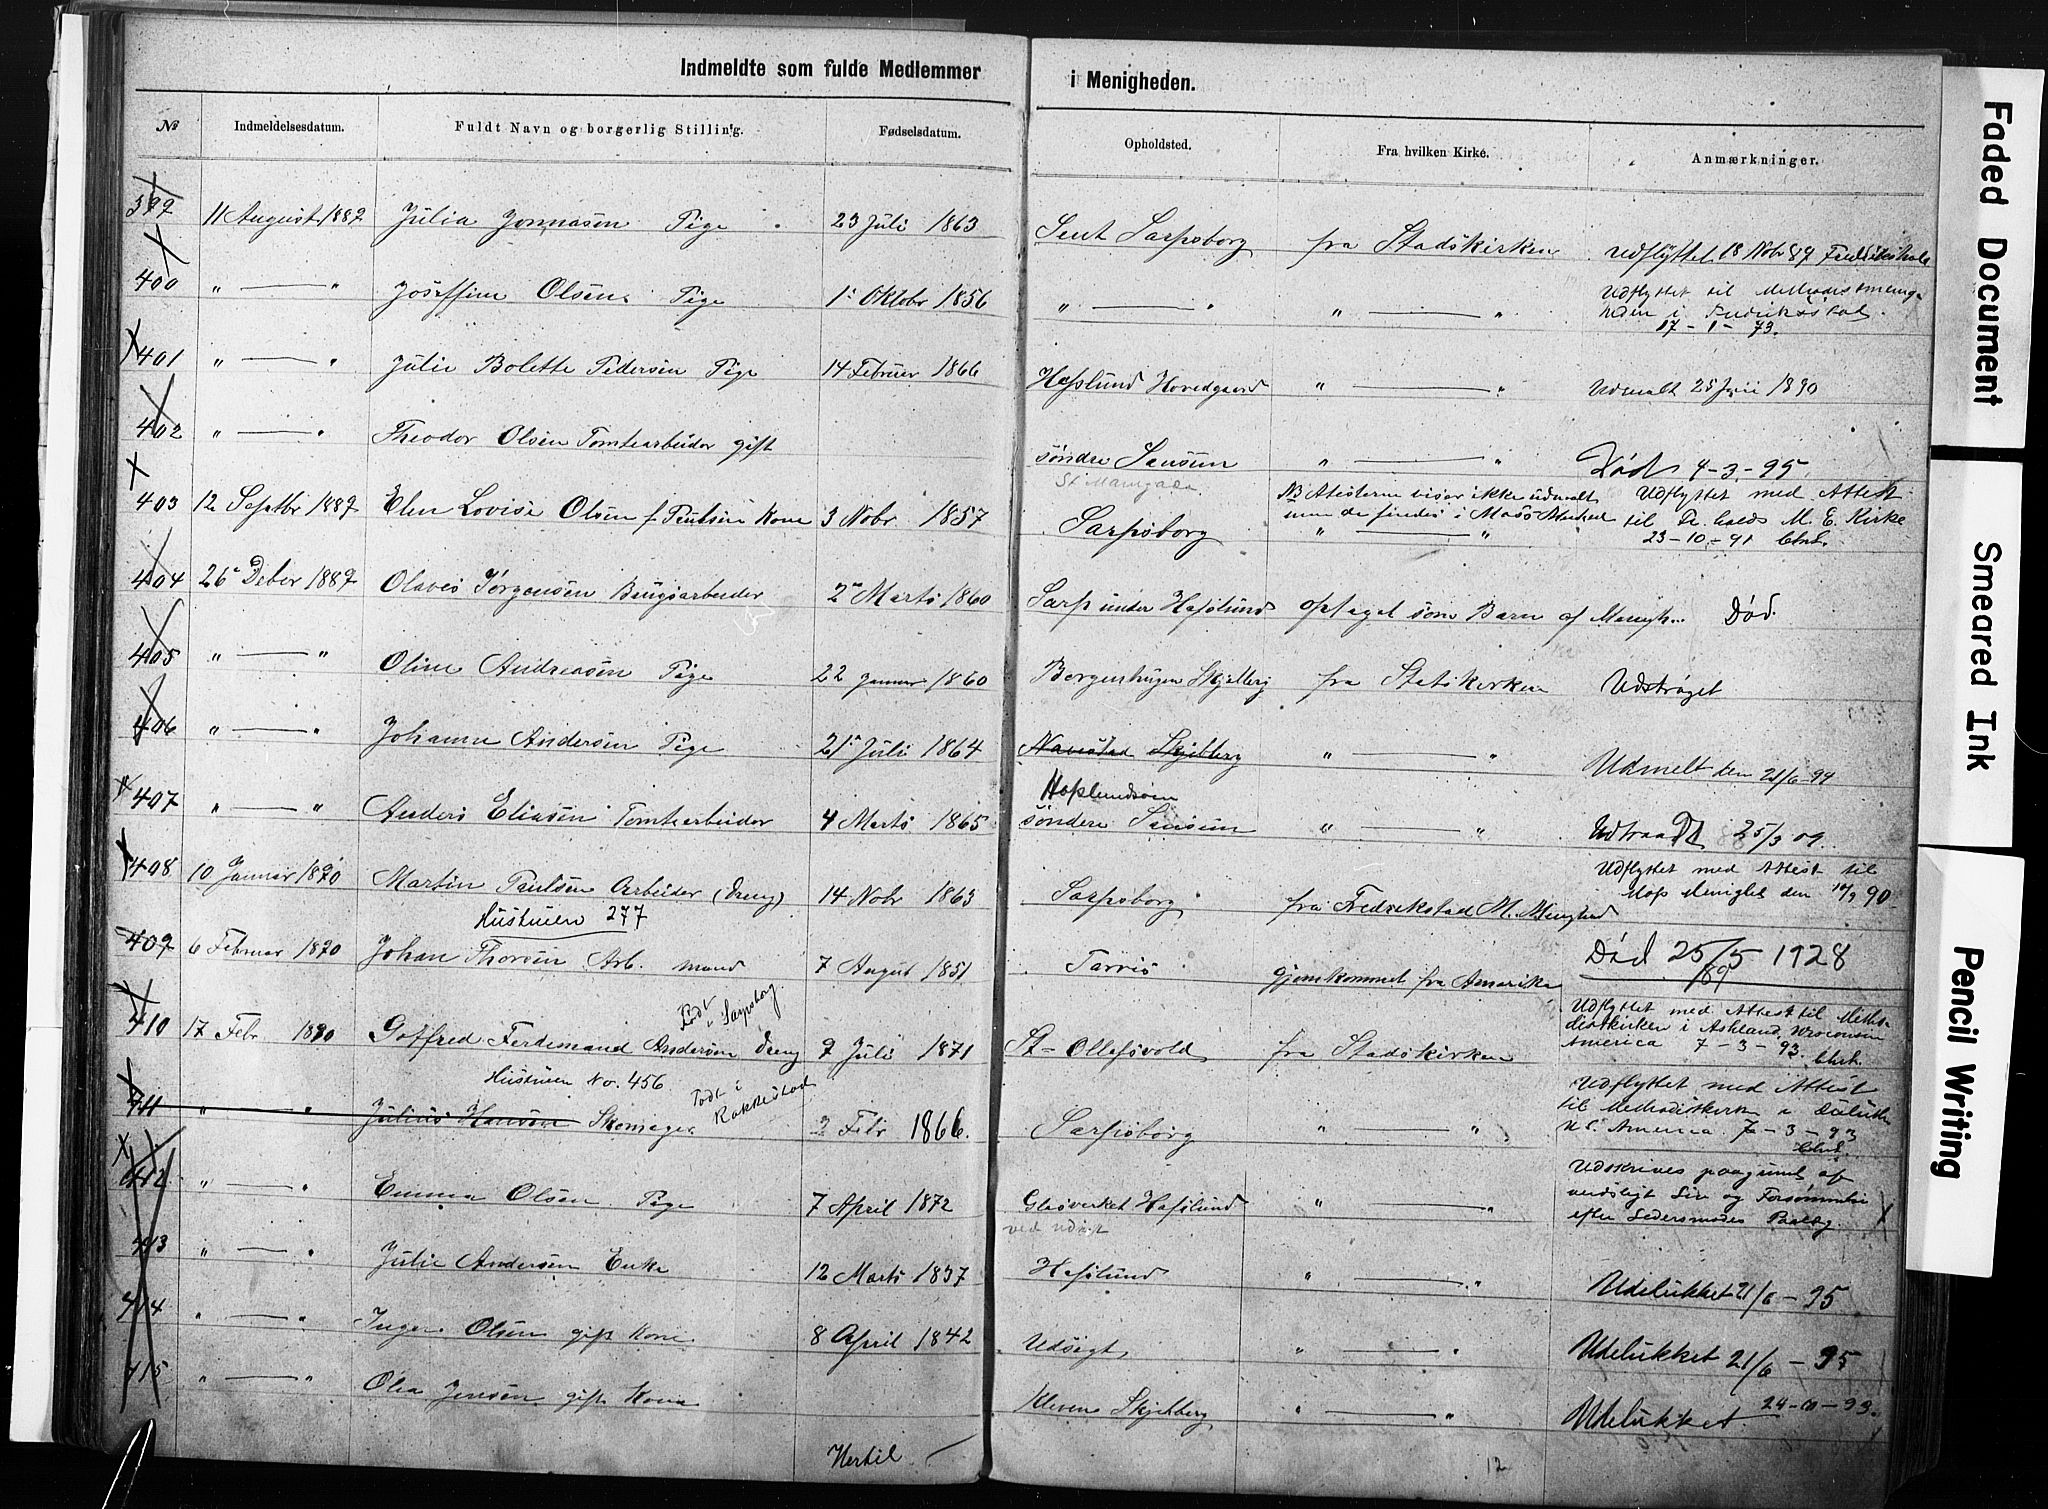 Indmeldte som fulde Medlemmer i Menigheden.
№ Indmeldelsesdatum. Fuldt Navn og borgerlig Stilling. Fødselsdatum. Opholdsted. Fra hvilken Kirke. Anmærkninger.
399 11 August 1889 Julia Jonnasén Pige 23 Juli 1863 Sarpsborg fra Stadskirken Udflyttet 18 Nobr 89
400 " — " Joseffine Olsen Pige 1 Oktobr 1856 " — " " — " Udflyttet til Methodistmenig-
heden i Fredriksstad.
17-1-93.
401 " — " Julie Bolette Pedersén Pige 14 Februer 1866 Hafslund Hovedgaard " — " Udmelt 25 Juni 1890
402 " — " Theodor Olsén Tomtearbeider gift søndre Sansun " — " Død 4-3-95
403 12 Septbr 1889 Elen Lovise Olsen f. Paulsén Kone 3 Nobr 1857 Sarpsborg " — "
NB Atisterne viser ikke udmelt
men de findes i
Udflyttet med Attest
til Fr. halds M. E. Kirke
23-10-91 Chrf.
404 26 Decbr 1889 Olaves Jørgensén Brugsarbeider 2 Marts 1860 Sarp under Hafslund optaget som Barn af Menigh.. Død.
405 " — " Oline Andreasén Pige 22 Januar 1860 Borgenhugen Skjeberg fra Statskirken Udstrøget
406 " — " Johanne Andersén Pige 21 Juli 1864 Navestad Skjebberg " — " Udmelt den 21/6-94
Hoplundsøen
407 " — " Anders Eliasén Tomtearbeider 4 Marts 1865 søndre Sansun " — " Udtraadt 25/3 09.
408 10 Januar 1890 Martin Paulsén Arbeider (Dreng) 14 Nobr 1863 Sarpsborg fra Fredrikstad M. Menighed
Udflyttet med Attest til
Mos Menighet den 10/9 90
Hustruen 277
409 6 Februar 1890 Johan Thorsén Arb. mand 7 August 1851 Tarris gjenkommet fra Amerika Død 25/5 1928
/89
Født i Sarpsborg
410 17 Febr 1890 Gotfred Ferdinand Andersén Dreng 7 Juli 1871 St-Ollefsvold fra Stadskirken
Udflyttet med Attest til Metho-
distkirken i Ashland, Wisconsin
America 7-3-93. Chrf.
Hustruen No. 456
Født i Rakkestad
411 " — " Julius Hansén Skomager 2 Febr 1866. Sarpsborg " — "
Udflyttet med Attest
til Methodistkirke i Duluth
N.S. America. 7-3-93
Chrf.
412 " — " Emma Olsen Pige 7 April 1872 Glasverket Hafslund " — "
ved udsigt
Udskrives paagrund af
verdsligt Liv og Forsømmelse
efter
413 " — " Julie Andersén Enke 12 Marts 1837 Hafslund " — " Udelukket 21/6-95
414 " — " Inger Olsén gift Kone 8 April 1842 Udsigt " — " Udelukket 21/6-95
415 " — " Olea Jensén gift Kone Kleven Skjebberg " — " Udelukket 24-10-93.
Hertil
12
Faded Document
Smeared Ink
Pencil Writing